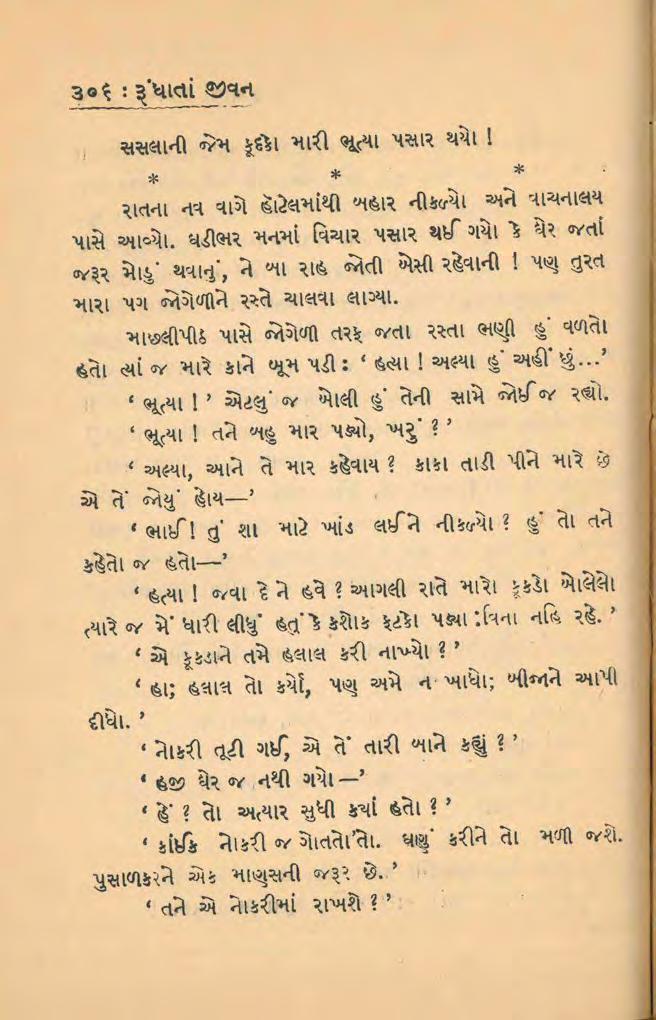 ૩૦૬ : રૂંધાતાં જીવન
સસલાની જેમ કૂદકો મારી ભૂત્યા પસાર થયો !
* * *
રાતના નવ વાગે હૉટેલમાંથી બહાર નીકળ્યો અને વાચનાલય
પાસે આવ્યો. ઘડીભર મનમાં વિચાર પસાર થઈ ગયો કે ઘેર જતાં
જરૂર મોડું થવાનું, ને બા રાહ જોતી બેસી રહેવાની ! પણ તુરત
મારા પગ જોગેળીને રસ્તે ચાલવા લાગ્યા.
માછલીપીઠ પાસે જોગેળી તરફ જતા રસ્તા ભણી હું વળતો
હતો ત્યાં જ મારે કાને બૂમ પડી : ‘ હત્યા ! અલ્યા હું અહીં છું...’
‘ ભૂત્યા ! ’ એટલું જ બોલી હું તેની સામે જોઈ જ રહ્યો.
‘ ભૂત્યા ! તને બહુ માર પડ્યો, ખરું ? ’
‘ અલ્યા, આને તે માર કહેવાય ? કાકા તાડી પીને મારે છે
એ તેં જોયું હોય—’
‘ ભાઈ ! તું શા માટે ખાંડ લઈને નીકળ્યો ? હું તો તને
કહેતો જ હતો—’
‘ હત્યા ! જવા દે ને હવે ? આગલી રાતે મારો કૂકડો બોલેલો
ત્યારે જ મેં ધારી લીધું હતું કે કશોક ફટકો પડ્યા વિના નહિ રહે. ’
‘ એ કૂકડાને તમે હલાલ કરી નાખ્યો ? ’
‘ હા; હલાલ તો કર્યો, પણ અમે ન ખાધો; બીજાને આપી
દીધો. ’
‘ નોકરી તૂટી ગઈ, એ તેં તારી બાને કહ્યું ? ’
‘ હજી ઘેર જ નથી ગયો —’
‘ હેં ? તો અત્યાર સુધી ક્યાં હતો ? ’
‘ કાંઈક નોકરી જ ગોતતો’તો. ઘણું કરીને તો મળી જશે.
પુસાળકરને એક માણસની જરૂર છે. ’
‘ તને એ નોકરીમાં રાખશે ? ’